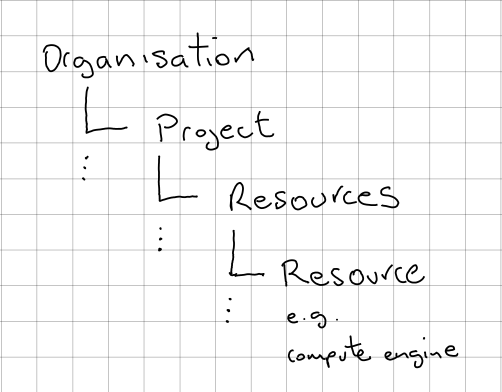 Organisation
Project
Resources
Resource
e.g.
compute engine